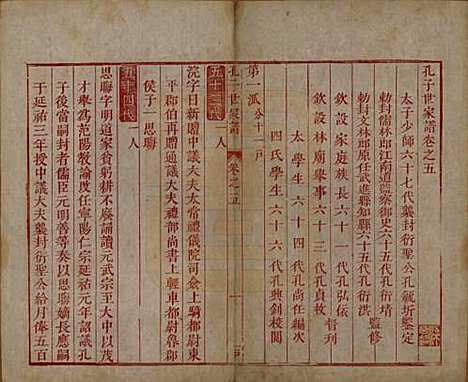 孔子世家譜卷之五
太子少師六十七代襲封衍聖公孔毓圻鑒定
勅封文林郎河南道監察御史六十五代孔衍㙷
勅封文林郎原任武進縣知縣六十五代孔衍洪
監修
欽設家庭族長六十一代孔弘依
欽設林廟舉事六十三代孔貞枚
督刊
太學生六十四代孔尚任編次
四氏學生六十六代孔興釗校閱
第一派分十一戶
孔子世家譜
卷之五
一
五十三代
一人
浣字日新贈中議大夫太常禮儀院司僉上騎都尉魯東
平郡伯再贈通議大夫禮部尚書上輕車都尉魯郡
侯子一思聯
五十四代
一人
思聯字明道家貧躬耕不廢誦讀元武宗至大中以茂
才舉爲范陽教諭度任寧陽仁宗延祐元年詔議孔
子後當嗣封者儒臣元明善等奏以思聯嫡長應嗣
于延祐三年授中議大夫襲封衍聖公給月俸五百